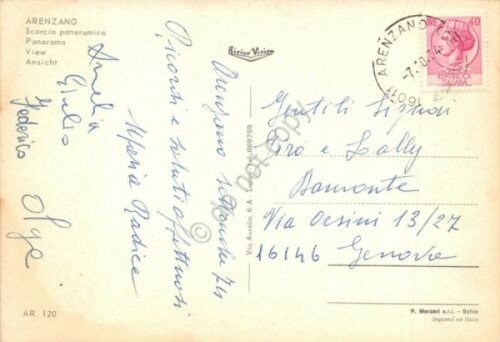 ARENZANO
Scorcio panoramico
Panorama
View
Ansicht
Amelia
Giulio
Federico
Olga
Arenzano settembre 74
Ricordi e saluti affettuosi
Maria Radice
River Vision
Via Aurelia, 6 A
669759
© not copy
ARENZANO
7.10.74
16011
40
REPUBBLICA ITALIANA
Gentili Signori
Piro e Lally
Bamonte
Via Orsini 13/27
16146 Genova
AR. 120
P. Marzari s.r.l. - Schio
Imprimé en Italie